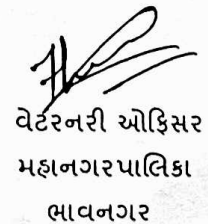 વેટરનરી ઓફિસર
મહાનગરપાલિકા
ભાવનગર